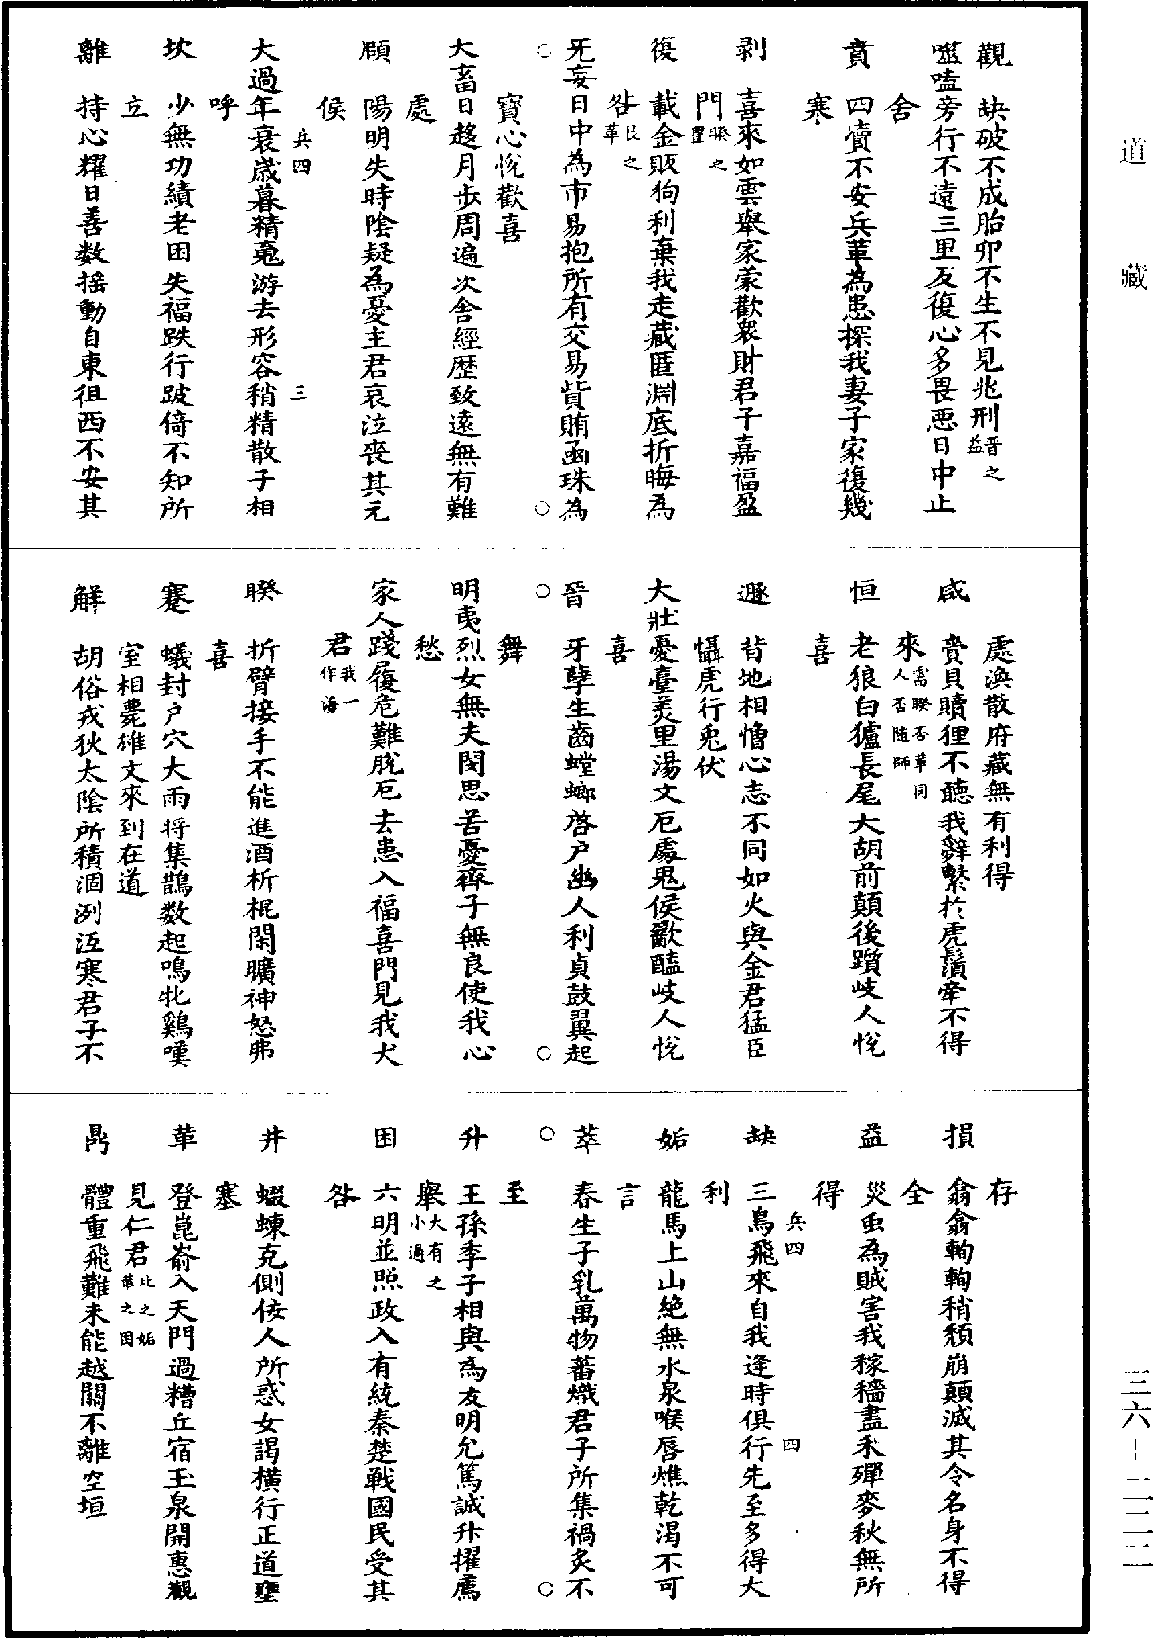 道藏
觀　缺破不成胎卵不生不見兆刑晉之益
噬嗑旁行不遠三里反復心多畏惡日中止
舍
賁　四瀆不安兵革為患探我妻子家復幾
寒
剥　喜來如雲舉家蒙歡衆財君子嘉福盈
門睽之
復　載金販狗利棄我走藏匿淵底折晦為
咎艮之革
旡妄日中為市易抱所有交易貲賄函珠為
寶心悅歡喜
大畜日趍月步周遍次舍經歷致遠無有難
處
頤　陽明失時陰疑為憂主君哀泣喪其元
侯
兵四　三
大過年衰歲暮精䰟游去形容稍精散子相
呼
坎　少無功績老困失福跌行跛倚不知所
立
離　持心耀日善数搖動自東徂西不安其
處渙散府藏無有利得
咸　賫貝贖狸不聽我辭繫於虎鬚牽不得
來需睽否革同人否隨師
恒　老狼白獹長尾大胡前顛後躓岐人悅
喜
遯　背地相憎心志不同如火與金君猛臣
懾虎行兎伏
大壯憂臺羑里湯文厄處鬼侯歠醢岐人悅
喜
晉　牙孽生齒螳螂啓户幽人利貞鼓翼起
舞
明夷烈女無夫閔思苦憂齊子無良使我心
愁
家人踐履危難脱厄去患入福喜門見我犬
君我一作海
睽　折臂接手不能進酒析棍閑曠神怒弗
喜
蹇　蟻封户穴大雨将集鵲数起鳴牝鷄嘆
室相薨雄文來到在道
解　胡俗戎狄太陰所積涸冽沍寒君子不
存
損　翕翕輷輷稍頽崩顛滅其令名身不得
全
益　災虫為賊害我稼穡盡禾殫麥秋無所
得
兵四　四
缺　三鳥飛來自我逢時俱行先至多得大
利
姤　龍馬上山絶無水泉喉唇燋乾渴不可
言
萃　春生子乳萬物蕃熾君子所集禍灾不
至
升　王孫季子相與為友明允篤誠升擢薦
舉大有之小過
困　六明並照政入有統秦楚戰國民受其
咎
井　蝃蝀充側佞人所惑女謁横行正道壅
塞
革　登崑崙入天門過糟丘宿玉泉開惠觀
見仁君比之姤革之困
鼎　體重飛難未能越關不離空垣
三六－二二二